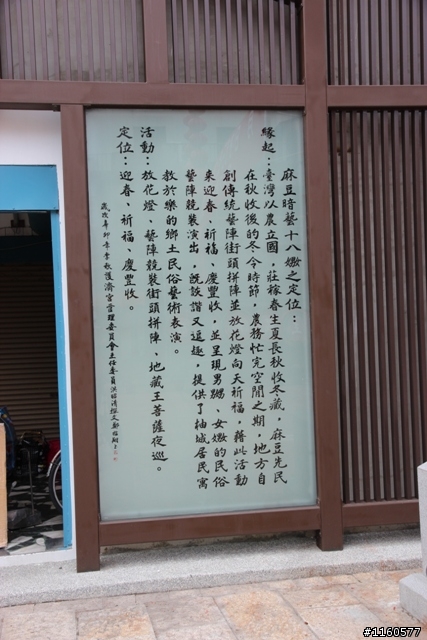 麻豆暗藝十八嬈之定位：
緣起：臺灣以農立國，莊稼春生夏長秋收冬藏，麻豆先民
在秋收後的冬令時節，農務忙完空閒之期，地方自
創傳統藝陣街頭拼陣並放花燈向天祈福，藉此活動
來迎春、祈福、慶豐收，並呈現男嬲、女嬈的民俗
藝陣競裝演出，既詼諧又逗趣，提供了柚城居民寓
教於樂的鄉土民俗藝術表演。
活動：放花燈、藝陣競裝街頭拼陣、地藏王菩薩夜巡。
定位：迎春、祈福、慶豐收。
歲次辛卯年季秋護濟宮管理委員會主任委員洪
#1160577